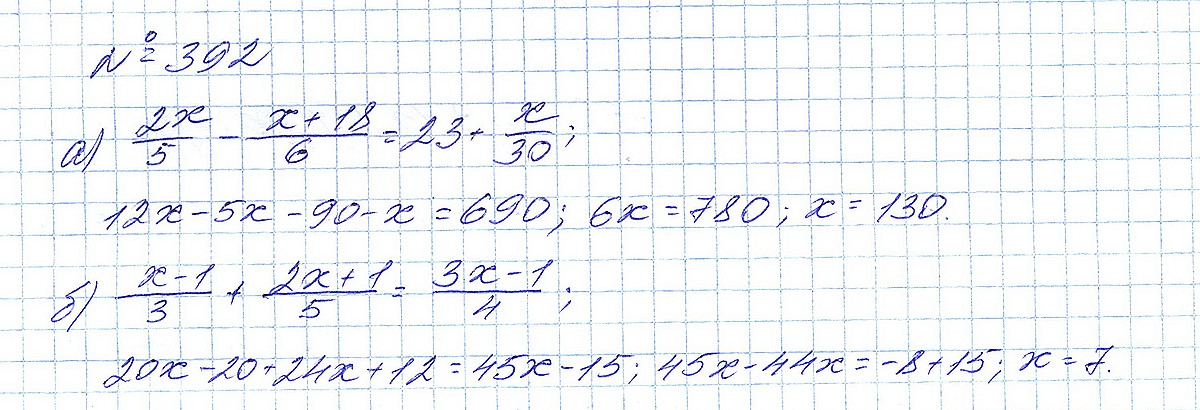 № 392
а) 2x/5 - (x+18)/6 = 23 + x/30;
12x - 5x - 90 - x = 690; 6x = 780; x = 130.
б) (x-1)/3 + (2x+1)/5 = (3x-1)/4;
20x - 20 + 24x + 12 = 45x - 15; 45x - 44x = -8 + 15; x = 7.